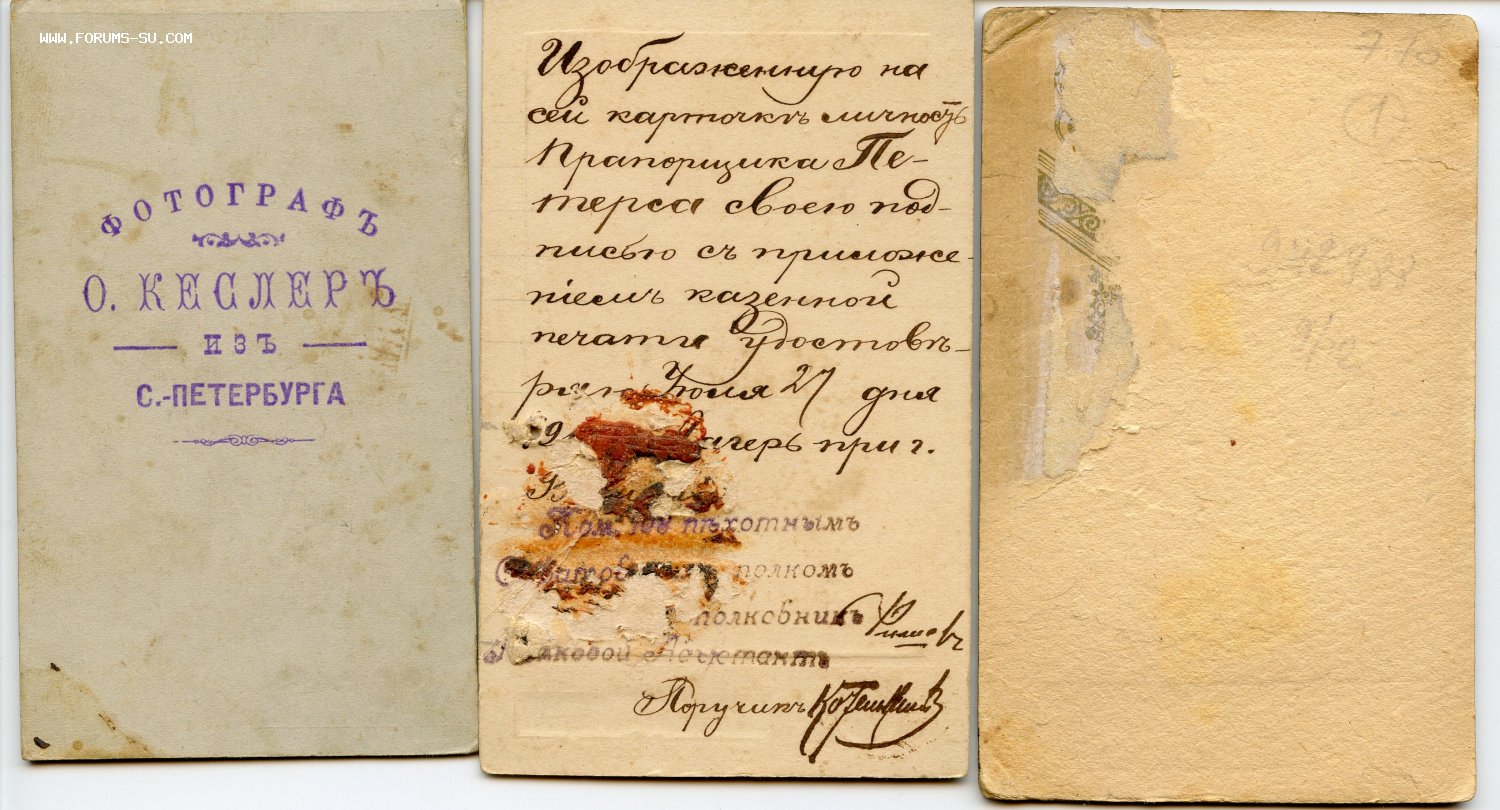 WWW.FORUMS-SU.COM
ФОТОГРАФЪ
О. КЕСЛЕРЪ
ИЗЪ
С.-ПЕТЕРБУРГА
Изображенную на
сей карточкѣ личность
Прапорщика Пе-
терса своею под-
писью съ приложе-
ніемъ казенной
печати удостовѣ-
ряю Іюля 27 дня
Лагерь при г.
Ком. пѣхотнымъ
полкомъ
полковникъ
Полковой Адъютантъ
Поручикъ